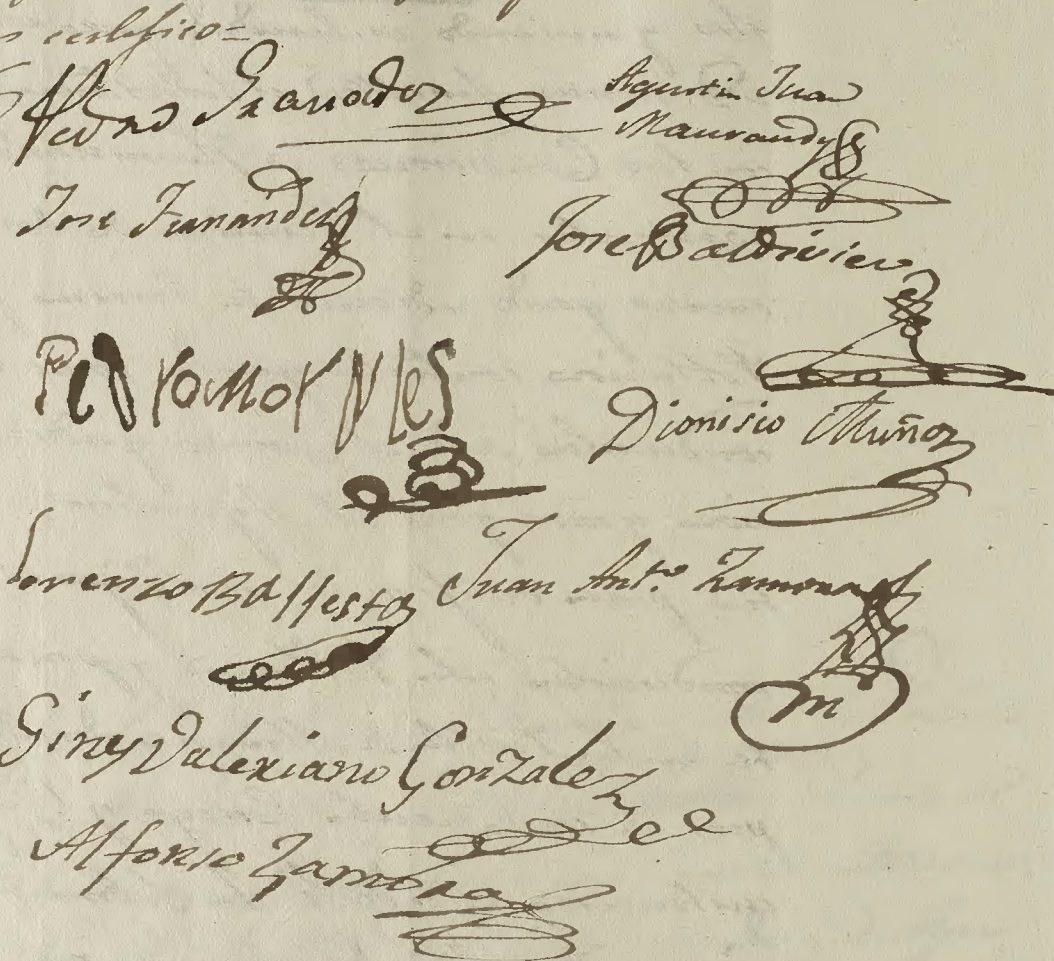 Pedro Granados
Agustin Juan
Maurandy
Jose Fernandez
Jose Baldivieso
PedromorNles
Dionisio Muñoz
Lorenzo Ballesta
Juan Ant.º Zamora
Gines Valeriano Gonzalez
Alfonso Zamora